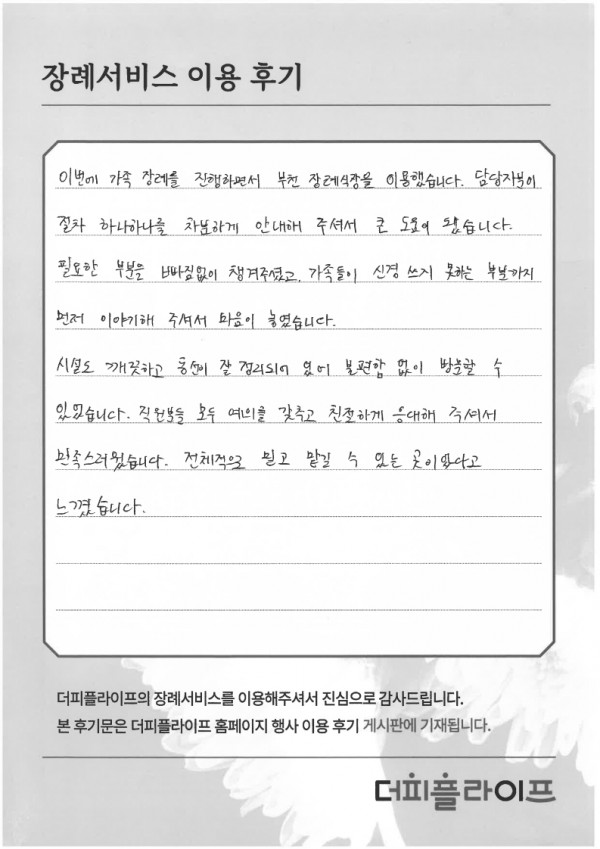 장례서비스 이용 후기
이번에 가족 장례를 진행하면서 부천 장례식장을 이용했습니다. 담당자분이
절차 하나하나를 차분하게 안내해 주셔서 큰 도움이 됐습니다.
필요한 부분을 빠짐없이 챙겨주셨고, 가족들이 신경 쓰지 못하는 부분까지
먼저 이야기해 주셔서 마음이 놓였습니다.
시설도 깨끗하고 동선이 잘 정리되어 있어 불편함 없이 방문할 수
있었습니다. 직원분들 모두 예의를 갖추고 친절하게 응대해 주셔서
만족스러웠습니다. 전체적으로 믿고 맡길 수 있는 곳이었다고
느꼈습니다.
더피플라이프의 장례서비스를 이용해주셔서 진심으로 감사드립니다.
본 후기문은 더피플라이프 홈페이지 행사 이용 후기 게시판에 기재됩니다.
더피플라이프